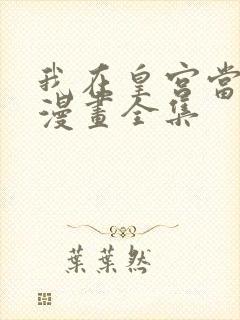 我在皇宮當
漫畫全集
葉葉然